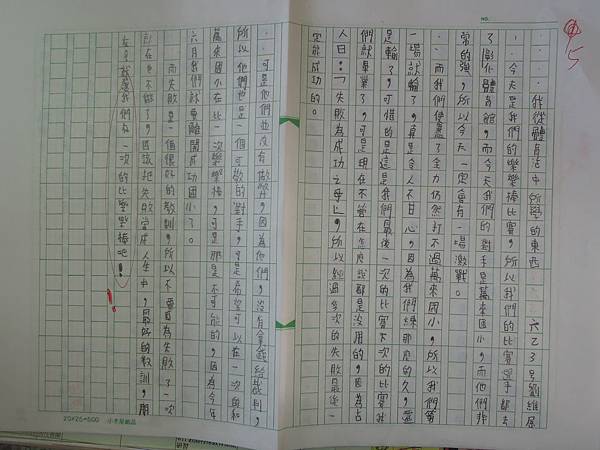 NO.
5
我從體育活中所學的東西　六乙23号劉維展
今天是我們的樂樂棒比賽,所以我們的比賽選手都去
了彰化體育館,而今天我們的對手是萬來國小,而他們非
常的強,所以今天一定會有一場激戰。
而我們使盡了全力仍然打不過萬來國小,所以我們第
一場就輸了,真是令人不甘心,因為我們練那麼的久,還
是輸了,可惜的是這是我們最後一次的比賽下次的比賽我
們就畢業了,可是現在不管在怎麼說都是沒用的,因為古
人曰:「失敗為成功之母」,所以經過多次的失敗最後一
定能成功的。
可是他們並沒有做弊,因為他們,沒有拿錢給裁判,
所以他們也是一個可敬的對手,可是希望可以在一次與和
萬來國小在比一次樂樂棒,可是那是不可能的,因為今年
六月我們就要離開成功國小了。
而失敗是一個很好的教訓,所以不要因為失敗了一次
就在也不做了,應該把失敗當成人生中,最好的教訓,期
在次讓我們有一次的比樂樂棒吧!
20×25=500 小羊屋紙品